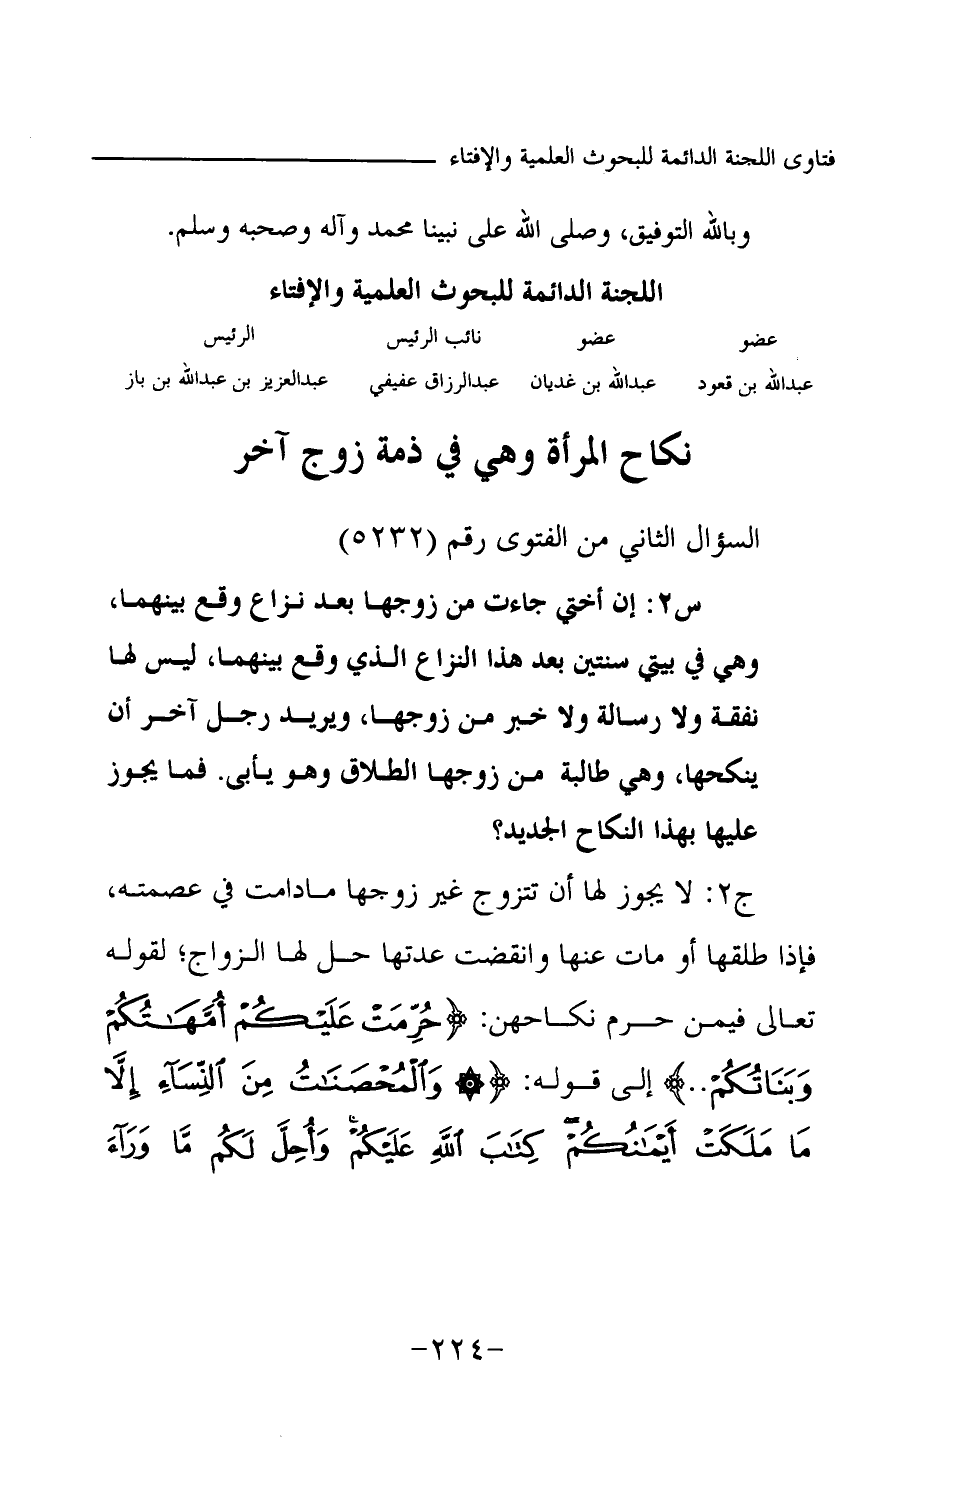 فتاوى اللجنة الدائمة للبحوث العلمية والإفتاء
وبالله التوفيق، وصلى الله على نبينا محمد وآله وصحبه وسلم.
اللجنة الدائمة للبحوث العلمية والإفتاء
عضو عضو نائب الرئيس الرئيس
عبدالله بن قعود عبدالله بن غديان عبدالرزاق عفيفي عبدالعزيز بن عبدالله بن باز
نكاح المرأة وهي في ذمة زوج آخر
السؤال الثاني من الفتوى رقم (٥٢٣٢)
س٢: إن أختي جاءت من زوجها بعد نزاع وقع بينهما،
وهي في بيتي سنتين بعد هذا النزاع الذي وقع بينهما، ليس لها
نفقة ولا رسالة ولا خبر من زوجها، ويريد رجل آخر أن
ينكحها، وهي طالبة من زوجها الطلاق وهو يأبى. فما يجوز
عليها بهذا النكاح الجديد؟
ج٢: لا يجوز لها أن تتزوج غير زوجها مادامت في عصمته،
فإذا طلقها أو مات عنها وانقضت عدتها حل لها الزواج؛ لقوله
تعالى فيمن حرم نكاحهن: ﴿حُرِّمَتْ عَلَيْكُمْ أُمَّهَٰتُكُمْ
وَبَنَاتُكُمْ..﴾ إلى قوله: ﴿۞ وَٱلْمُحْصَنَٰتُ مِنَ ٱلنِّسَآءِ إِلَّا
مَا مَلَكَتْ أَيْمَٰنُكُمْ ۖ كِتَٰبَ ٱللَّهِ عَلَيْكُمْ ۚ وَأُحِلَّ لَكُم مَّا وَرَآءَ
-٢٢٤-